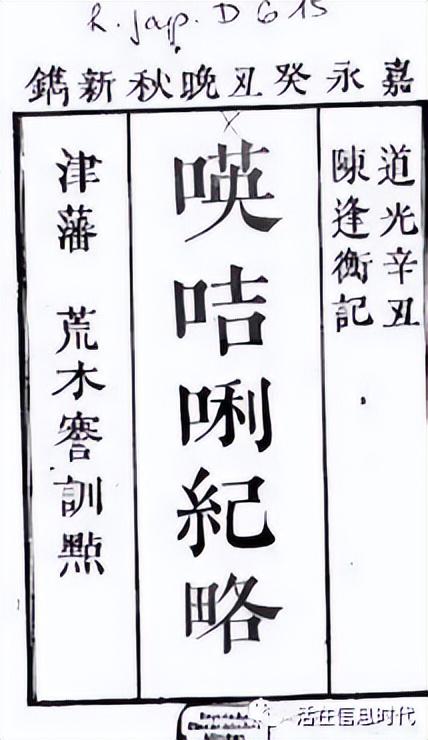 R. Jap. D 6 15
嘉永癸丑晚秋新鐫
道光辛丑
陳逢衡記
㖛咭唎紀略
津藩 荒木謇訓點
活在信息时代